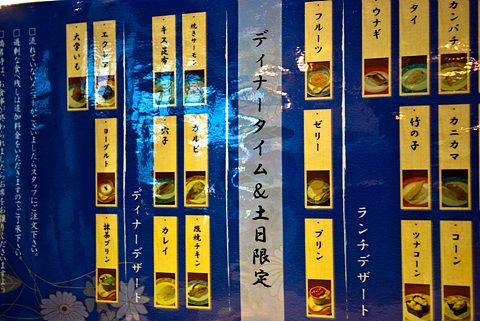 カンパチ
カニカマ
コーン
タイ
竹の子
ツナコーン
ウナギ
ランチデザート
フルーツ
ゼリー
プリン
ディナータイム&土日限定
焼きサーモン
カルビ
照焼チキン
キス昆布
穴子
カレイ
ディナーデザート
エクレア
ヨーグルト
抹茶プリン
大学いも
□流れていないメニューがございましたらスタッフにご注文下さい。
□過剰な食べ残しは追加料金をいただきますのでご了承下さい。